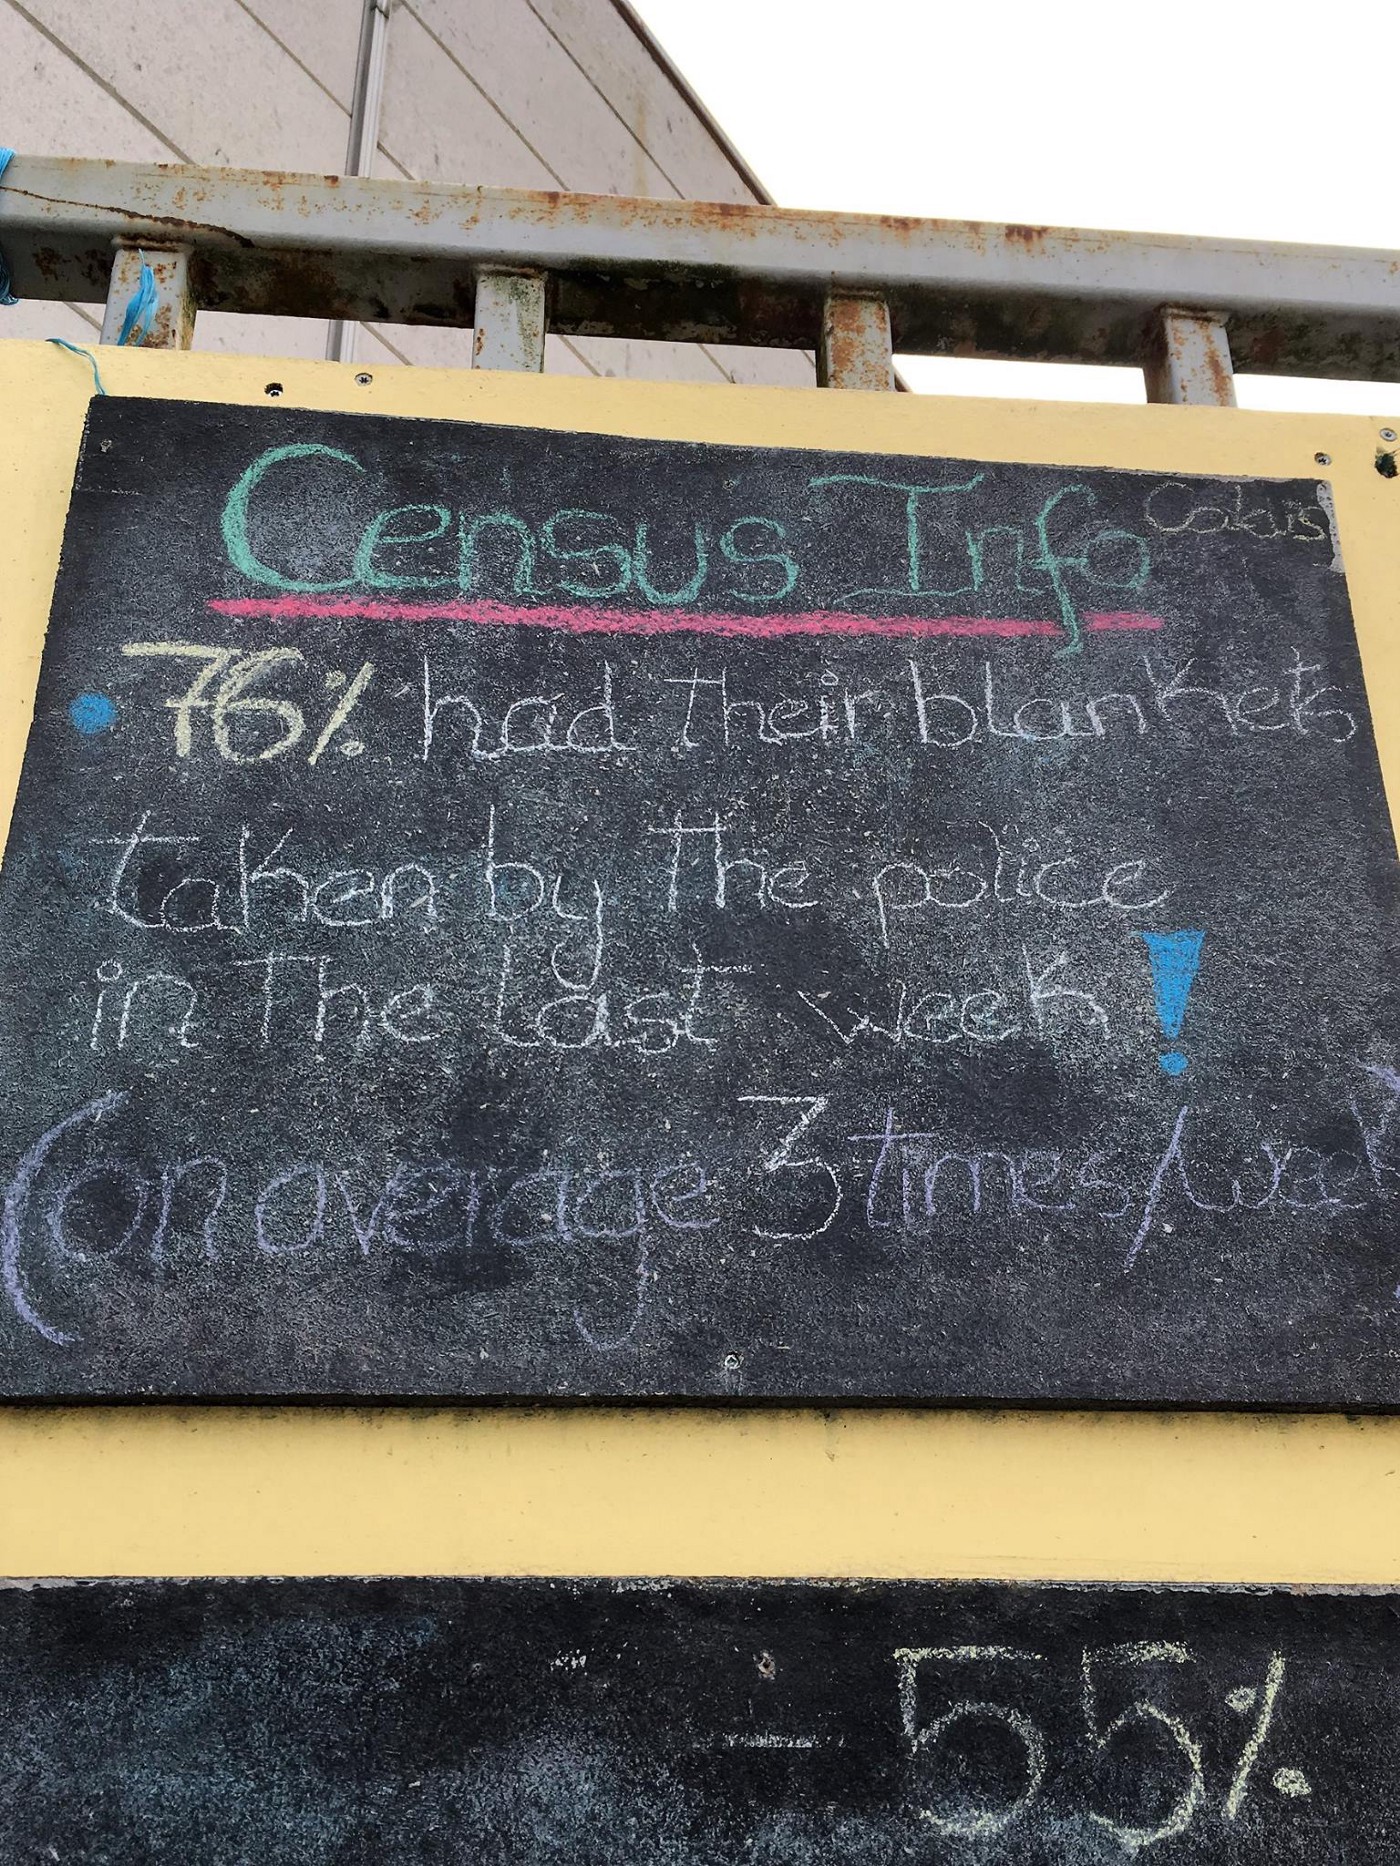 Census Info Calais
• 76% had their blankets
taken by the police
in the last week!
(on average 3 times/week)
- 55%